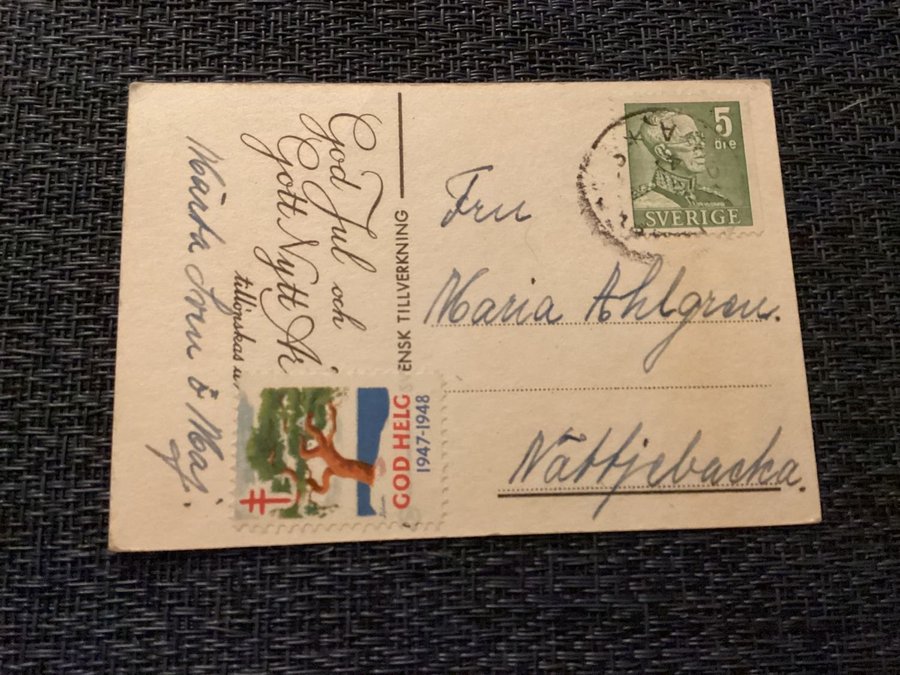 God Jul och
Gott Nytt År
tillönskas av
Märta Sven & Maj.
ENSK TILLVERKNING
GOD HELG
1947-1948
5
ÖRE
SVERIGE
Fru
Maria Ahlgren.
Nättjebacka.